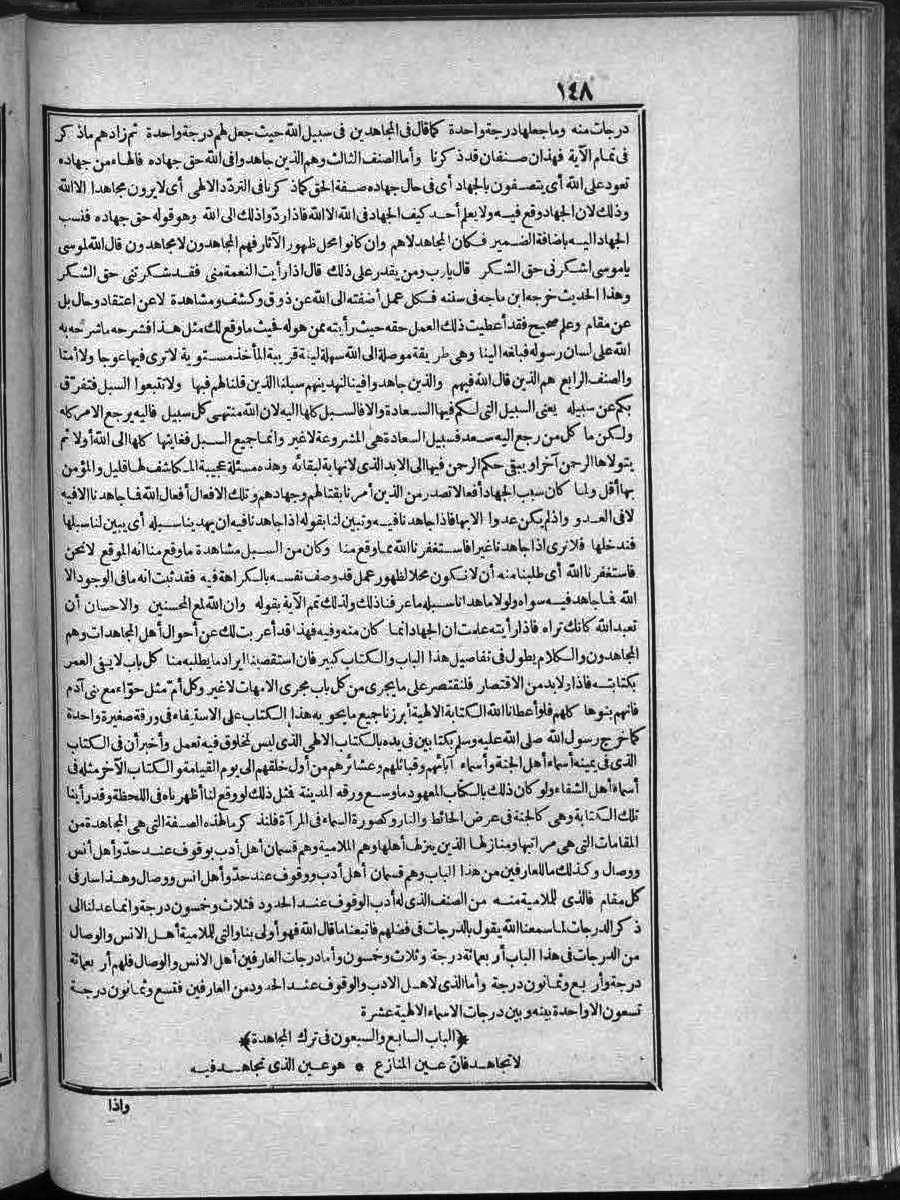 ١٤٨
درجات منه وما جعلها درجة واحدة كما قال فى المجاهدين فى سبيل الله حيث جعل لهم درجة واحدة ثم زادهم ماذكر
فى تمام الآية فهذان صنفان قد ذكرنا وأما الصنف الثالث وهم الذين جاهدوا فى الله حق جهاده فالهاء من جهاده
تعود على الله أى يتصفون بالجهاد أى فى حال جهاده صفة الحق كماذكرنا فى التردد الالهى أى لا يرون مجاهدا الا الله
وذلك لان الجهاد وقع فيه ولا يعلم أحد كيف الجهاد فى الله الا الله فاذا ردّوا ذلك الى الله وهو قوله حق جهاده فنسب
الجهاد اليه باضافة الضمير فكان المجاهد لاهم وان كانوا محل ظهور الآثار فهم المجاهدون لا مجاهدون قال الله لموسى
ياموسى اشكرنى حق الشكر قال يارب ومن يقدر على ذلك قال اذا رأيت النعمة منى فقد شكرتنى حق الشكر
وهذا الحديث خرجه ابن ماجه فى سننه فكل عمل أضفته الى الله عن ذوق وكشف ومشاهدة لا عن اعتقاد وحال بل
عن مقام وعلم صحيح فقد أعطيت ذلك العمل حقه حيث رأيته ممن هو له فحيث ما وقع لك مثل هذا فشرحه ما شرحه به
الله على لسان رسوله فبلغه الينا وهى طريقة موصلة الى الله سهلة لينة قريبة المأخذ مستوية لا ترى فيها عوجا ولا أمتا
والصنف الرابع هم الذين قال الله فيهم والذين جاهدوا فينا لنهدينهم سبلنا الذين قلنا لهم فيها ولا تتبعوا السبل فتفرّق
بكم عن سبيله يعنى السبيل التى لكم فيها السعادة والا فالسبل كلها اليه لان الله منتهى كل سبيل فاليه يرجع الامر كله
ولكن ما كل من رجع اليه سعد فسبيل السعادة هى المشروعة لا غير وانما جميع السبل فغايتها كلها الى الله أولا ثم
يتولاها الرحمن آخرا ويبقى حكم الرحمن فيها الى الابد الذى لا نهاية لبقائه وهذه مسئلة عجيبة المكاشف لها قليل والمؤمن
بها أقل ولما كان سبب الجهاد أفعالا تصدر من الذين أمرنا بقتالهم وجهادهم وتلك الافعال أفعال الله فما جاهدنا الا فيه
لا فى العدو واذ لم يكن عدوا الا بها فاذا جاهدنا فيه وتبين لنا بقوله اذا جاهدنا فيه ان يهدينا سبيله أى يبين لنا سبلها
فندخلها فلا نرى اذا جاهدنا غيرا فاستغفرنا الله مما وقع منا وكان من السبل مشاهدة ما وقع منا انه الموقع لا نحن
فاستغفرنا الله أى طلبنا منه أن لا نكون محلا لظهور عمل قد وصف نفسه بالكراهة فيه فقد ثبت انه ما فى الوجود الا
الله فما جاهد فيه سواه ولولا ما هدانا سبيله ما عرفنا ذلك ولذلك تمم الآية بقوله وان الله لمع المحسنين والاحسان أن
تعبد الله كانك تراه فاذا رأيته علمت ان الجهاد انما كان منه وفيه فهذا قد أعربت لك عن أحوال أهل المجاهدات وهم
المجاهدون والكلام يطول فى تفاصيل هذا الباب والكتاب كبير فان استقصينا ايراد ما يطلبه منا كل باب لا يفى العمر
بكتابته فاذا لا بد من الاقتصار فلنقتصر على ما يجرى من كل باب مجرى الامهات لا غير وكل أمّ مثل حوّاء مع بنى آدم
فانهم بنوها كلهم فلو أعطانا الله الكتابة الالهية أبرزنا جميع ما يحويه هذا الكتاب على الاستيفاء فى ورقة صغيرة واحدة
كما خرج رسول الله صلى الله عليه وسلم بكتابين فى يده بالكتاب الالهى الذى ليس لمخلوق فيه تعمل وأخبر أن فى الكتاب
الذى فى يمينه أسماء أهل الجنة وأسماء آبائهم وقبائلهم وعشائرهم من أول خلقهم الى يوم القيامة والكتاب الآخر مثله فى
أسماء أهل الشقاء ولو كان ذلك بالكتاب المعهود ما وسع ورقه المدينة فمثل ذلك لو وقع لنا أظهرناه فى اللحظة وقد رأينا
تلك الكتابة وهى كالجنة فى عرض الحائط والنار وكصورة السماء فى المرآة فلنذكر ما لهذه الصفة التى هى المجاهدة من
المقامات التى هى مراتبها ومنازلها الذين ينزلها أهلها وهم الملامية وهم قسمان أهل أدب بوقوف عند حدّ وأهل أنس
ووصال وكذلك ما للعارفين من هذا الباب وهم قسمان أهل أدب ووقوف عند حدّ وأهل انس ووصال وهذا سار فى
كل مقام فالذى للملامية منه من الصنف الذى له أدب الوقوف عند الحدود فثلاث وخمسون درجة وانما عدلنا الى
ذكر الدرجات لما سمعنا الله يقول بالدرجات فى فضلهم فاتبعنا ما قال الله فهو أولى بنا والتى للملامية أهل الانس والوصال
من الدرجات فى هذا الباب أربعمائة درجة وثلاث وخمسون وأما درجات العارفين أهل الانس والوصال فلهم أربعمائة
درجة وأربع وثمانون درجة وأما الذى لاهل الادب والوقوف عند الحدود من العارفين فتسع وثمانون درجة
تسعون الا واحدة بينه وبين درجات الاسماء الالهية عشرة
﴿الباب السابع والسبعون فى ترك المجاهدة﴾
لا تجاهد فانّ عين المنازع * هو عين الذى تجاهد فيه
واذا